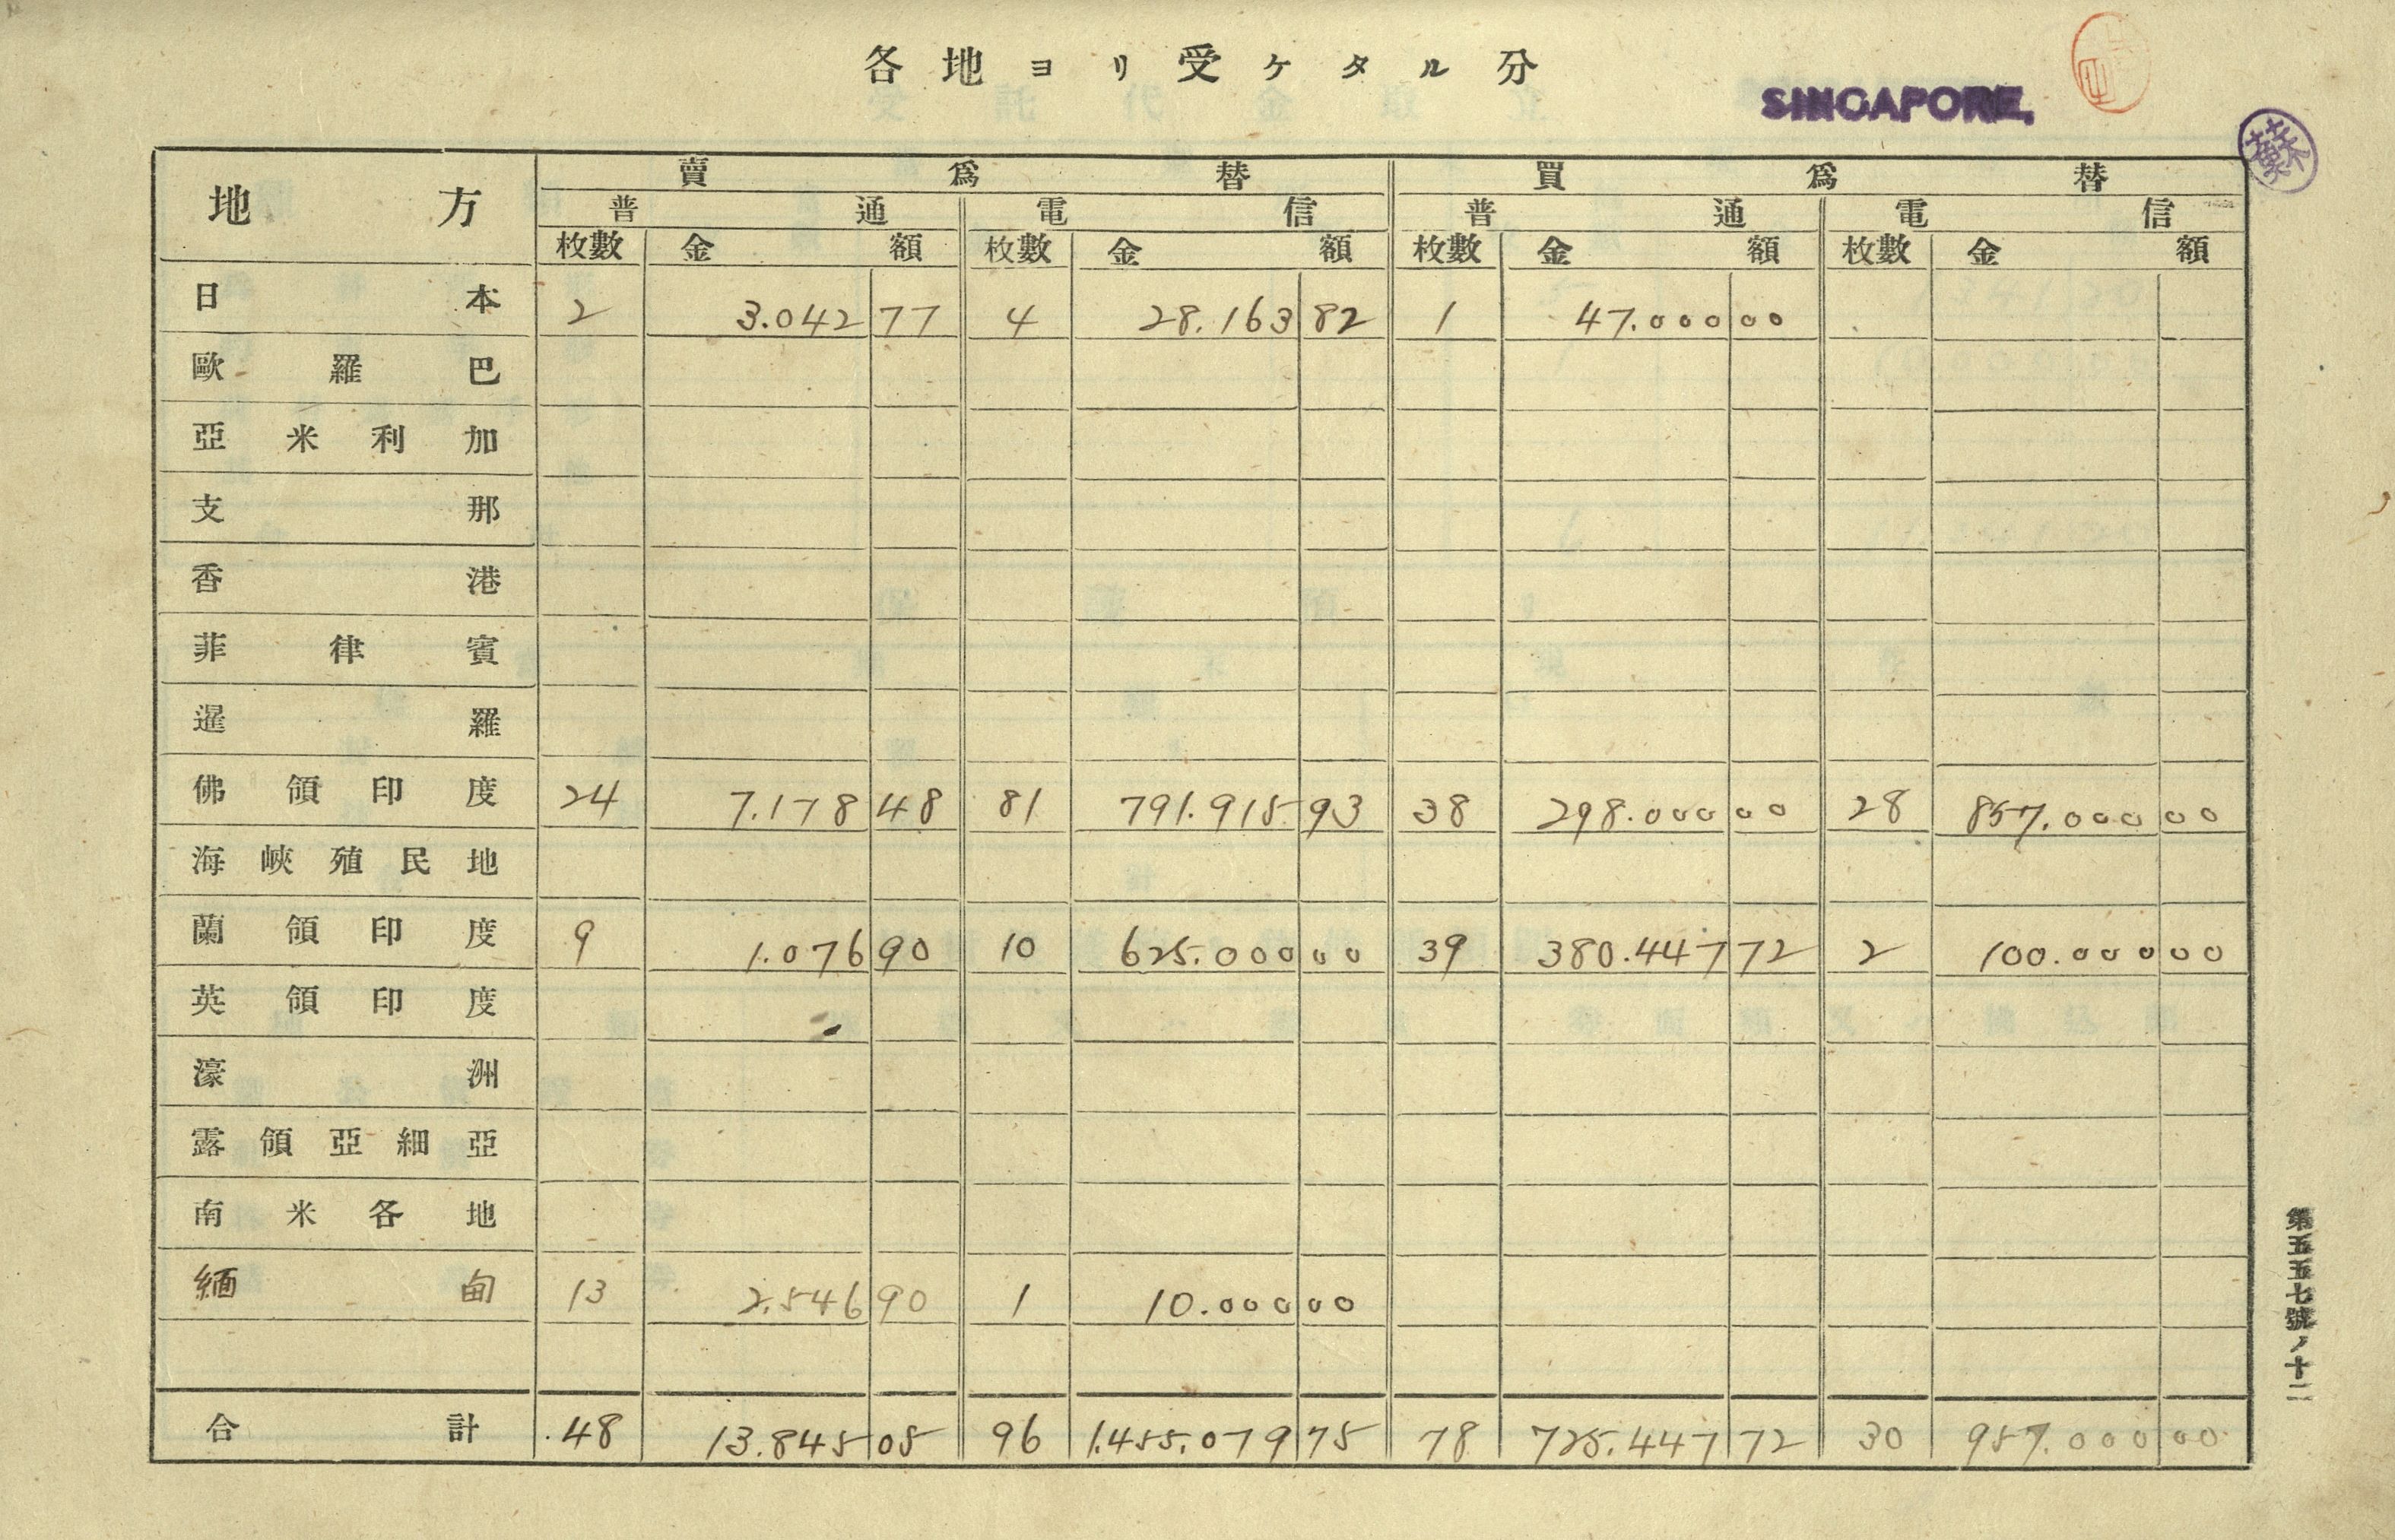 各地ヨリ受ケタル分
SINGAPORE.
蘇
地方 賣爲替 買爲替
普通 電信 普通 電信
枚數 金額 枚數 金額 枚數 金額 枚數 金額
日本 2 3.042 77 4 28.163 82 1 47.000 00
歐羅巴
亞米利加
支那
香港
菲律賓
暹羅
佛領印度 24 7.178 48 81 791.915 93 38 298.000 00 28 857.000 00
海峽殖民地
蘭領印度 9 1.076 90 10 625.000 00 39 380.447 72 2 100.000 00
英領印度
濠洲
露領亞細亞
南米各地
緬甸 13 2.546 90 1 10.000 00
合計 48 13.845 05 96 1.455.079 75 78 725.447 72 30 957.000 00
第五五七號ノ十二